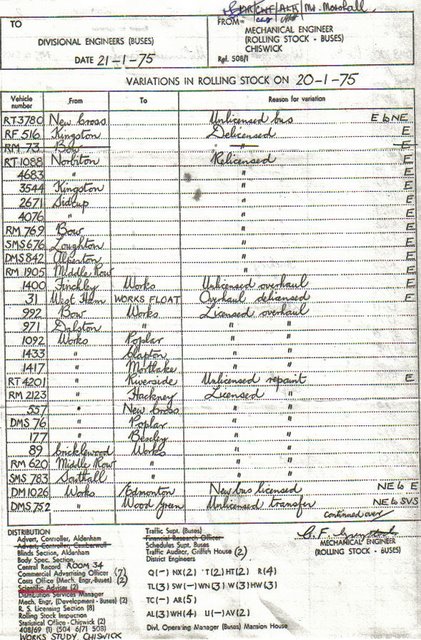 Mr. Marshall
TO
DIVISIONAL ENGINEERS (BUSES)
DATE 21-1-75
FROM—
MECHANICAL ENGINEER
(ROLLING STOCK - BUSES)
CHISWICK
Ref. 508/1
VARIATIONS IN ROLLING STOCK ON 20-1-75
Vehicle number From To Reason for variation
RT3780 New Cross Unlicensed bus E to NE
RF 516 Kingston Delicensed E
RM 73 Bow " E
RT 1088 Norbiton Relicensed E
4683 " " E
3544 Kingston " E
2671 Sidcup " E
4076 " " E
RM 769 Bow " E
SMS 676 Loughton " E
DMS 842 Alperton " E
RM 1905 Middle Row " E
1400 Finchley Works Unlicensed overhaul E
31 West Ham WORKS FLOAT Overhaul delicensed E
992 Bow Works Licensed overhaul
971 Dalston " " "
1092 Works Poplar " "
1433 " Clapton " "
1417 " Mortlake " "
RT 4201 " Riverside Unlicensed repaint E
RM 2123 " Hackney Licensed "
557 " New Cross " "
DMS 76 " Poplar " "
177 " Bexley " "
89 Cricklewood Works " "
RM 620 Middle Row " " "
SMS 783 Southall " " "
DM 1026 Works Edmonton New bus licensed NE to E
DMS 752 " Wood Green Unlicensed transfer NE to SVS
Continued over
MECHANICAL ENGINEER
(ROLLING STOCK - BUSES)
DISTRIBUTION
Advert, Controller, Aldenham
Advert, Controller, Camberwell
Blinds Section, Aldenham
Body Spec. Section
Central Record ROOM 34
Commercial Advertising Officer (7)
Costs Office (Mech. Engr. Buses) (2)
Scientific Adviser (2)
Distribution Services Manager
Mech. Engr. (Development - Buses) (2)
R. S. Licensing Section (8)
Rolling Stock Inspection
Statistical Office - Chiswick (2)
408/69 (1) 504 6/71 508)
WORKS STUDY CHISWICK
Traffic Supt. (Buses)
Financial Research Officer
Schedules Supt. Buses
Traffic Auditor, Griffith House (2)
District Engineers
Q(-) NX(2) T(2) HT(2) R(4)
TL(3) SW(-) WN(3) W(3) HW(3)
TC(-) AR(5)
AL(3) WH(4) U(-) AV(2)
Divl. Operating Manager (Buses) Mansion House